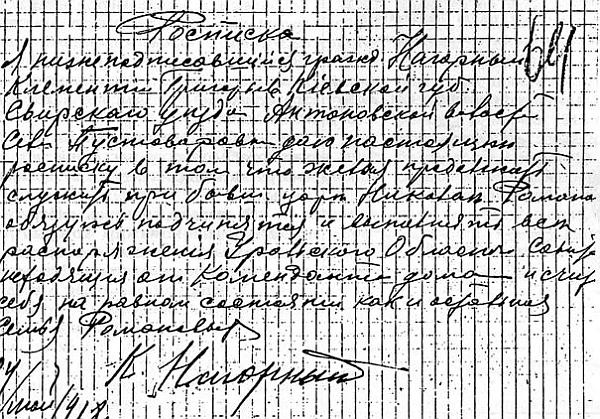 Росписка
Я нижеподписавшийся гражд. Нагорный
Климентий Григорьев Киевской губ.
Свирского уезда Антоновской волости
Село Пустоваровка даю настоящую
росписку в том что желая продолжать
служить при бывш царе Николае Романо
обязуюсь подчинятся и выполнять все
распоряжения Уральского Област Сов
исходящия от коменданта дома и счит
себя на равном состоянии как и остальная
семья Романовых
К. Нагорный
24/
май 1918.